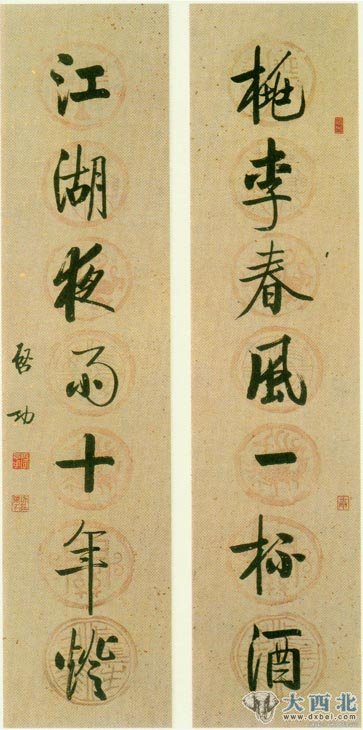 桃李春風一杯酒
江湖夜雨十年燈
啓功
大西北
www.dxbei.com